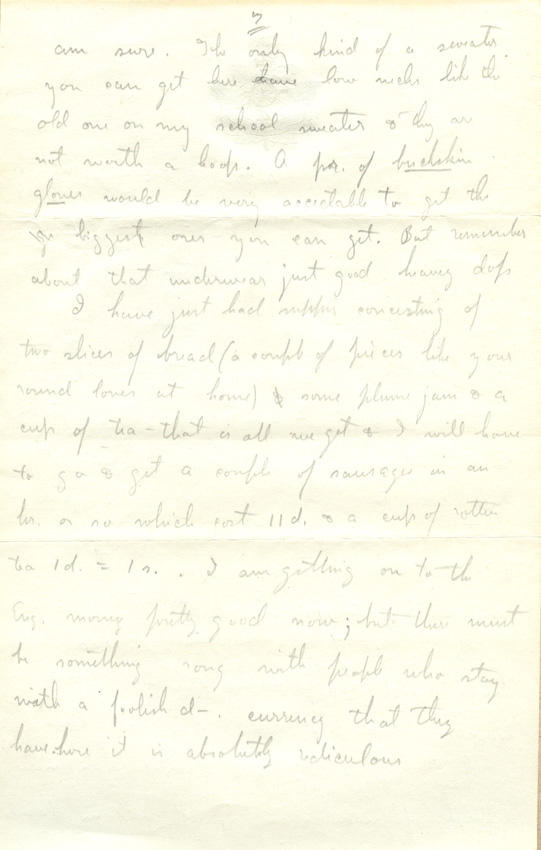 7
am sure. The only kind of a sweater
you can get here have low necks like the
old one on my school sweater & they are
not worth a hoop. A pr. of buckskin
gloves would be very acceptable to get the
biggest ones you can get. But remember
about that underwear just good heavy
I have just had supper consisting of
two slices of bread (a couple of pieces like your
round loves at home) & some plume jam & a
cup of tea - that is all we get & I will have
to go & get a couple of sausages in an
hr. or so which cost 11d. & a cup of rotten
tea 1d. = 1s. . I am getting on to the
Eng. money pretty good now; but there must
be something rong with people who stay
with a foolish d-. currency that they
have here it is absolutely rediculous